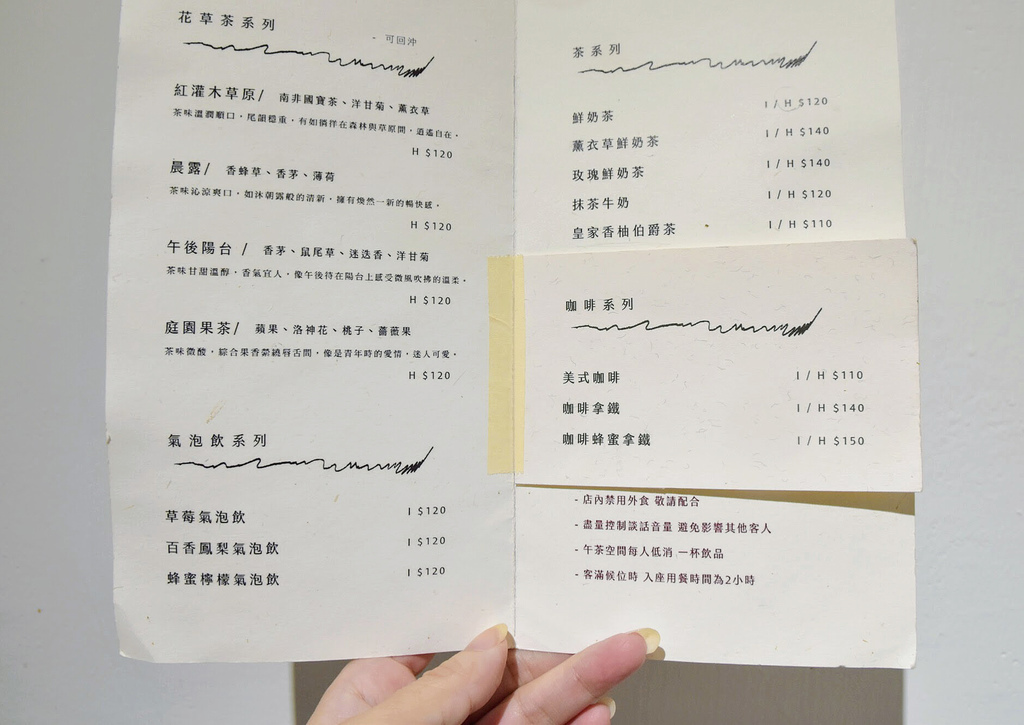 花草茶系列
- 可回沖
紅灌木草原/ 南非國寶茶、洋甘菊、薰衣草
茶味溫潤順口，尾韻穩重，有如徜徉在森林與草原間，逍遙自在。
H $120
晨露/ 香蜂草、香茅、薄荷
茶味沁涼爽口，如沐朝露般的清新，擁有煥然一新的暢快感。
H $120
午後陽台 / 香茅、鼠尾草、迷迭香、洋甘菊
茶味甘甜溫醇，香氣宜人，像午後待在陽台上感受微風吹拂的溫柔。
H $120
庭園果茶/ 蘋果、洛神花、桃子、薔薇果
茶味微酸，綜合果香縈繞唇舌間，像是青年時的愛情，迷人可愛。
H $120
氣泡飲系列
草莓氣泡飲 I $120
百香鳳梨氣泡飲 I $120
蜂蜜檸檬氣泡飲 I $120
茶系列
鮮奶茶 I / H $120
薰衣草鮮奶茶 I / H $140
玫瑰鮮奶茶 I / H $140
抹茶牛奶 I / H $120
皇家香柚伯爵茶 I / H $110
咖啡系列
美式咖啡 I / H $110
咖啡拿鐵 I / H $140
咖啡蜂蜜拿鐵 I / H $150
- 店內禁用外食 敬請配合
- 盡量控制談話音量 避免影響其他客人
- 午茶空間每人低消 一杯飲品
- 客滿候位時 入座用餐時間為2小時